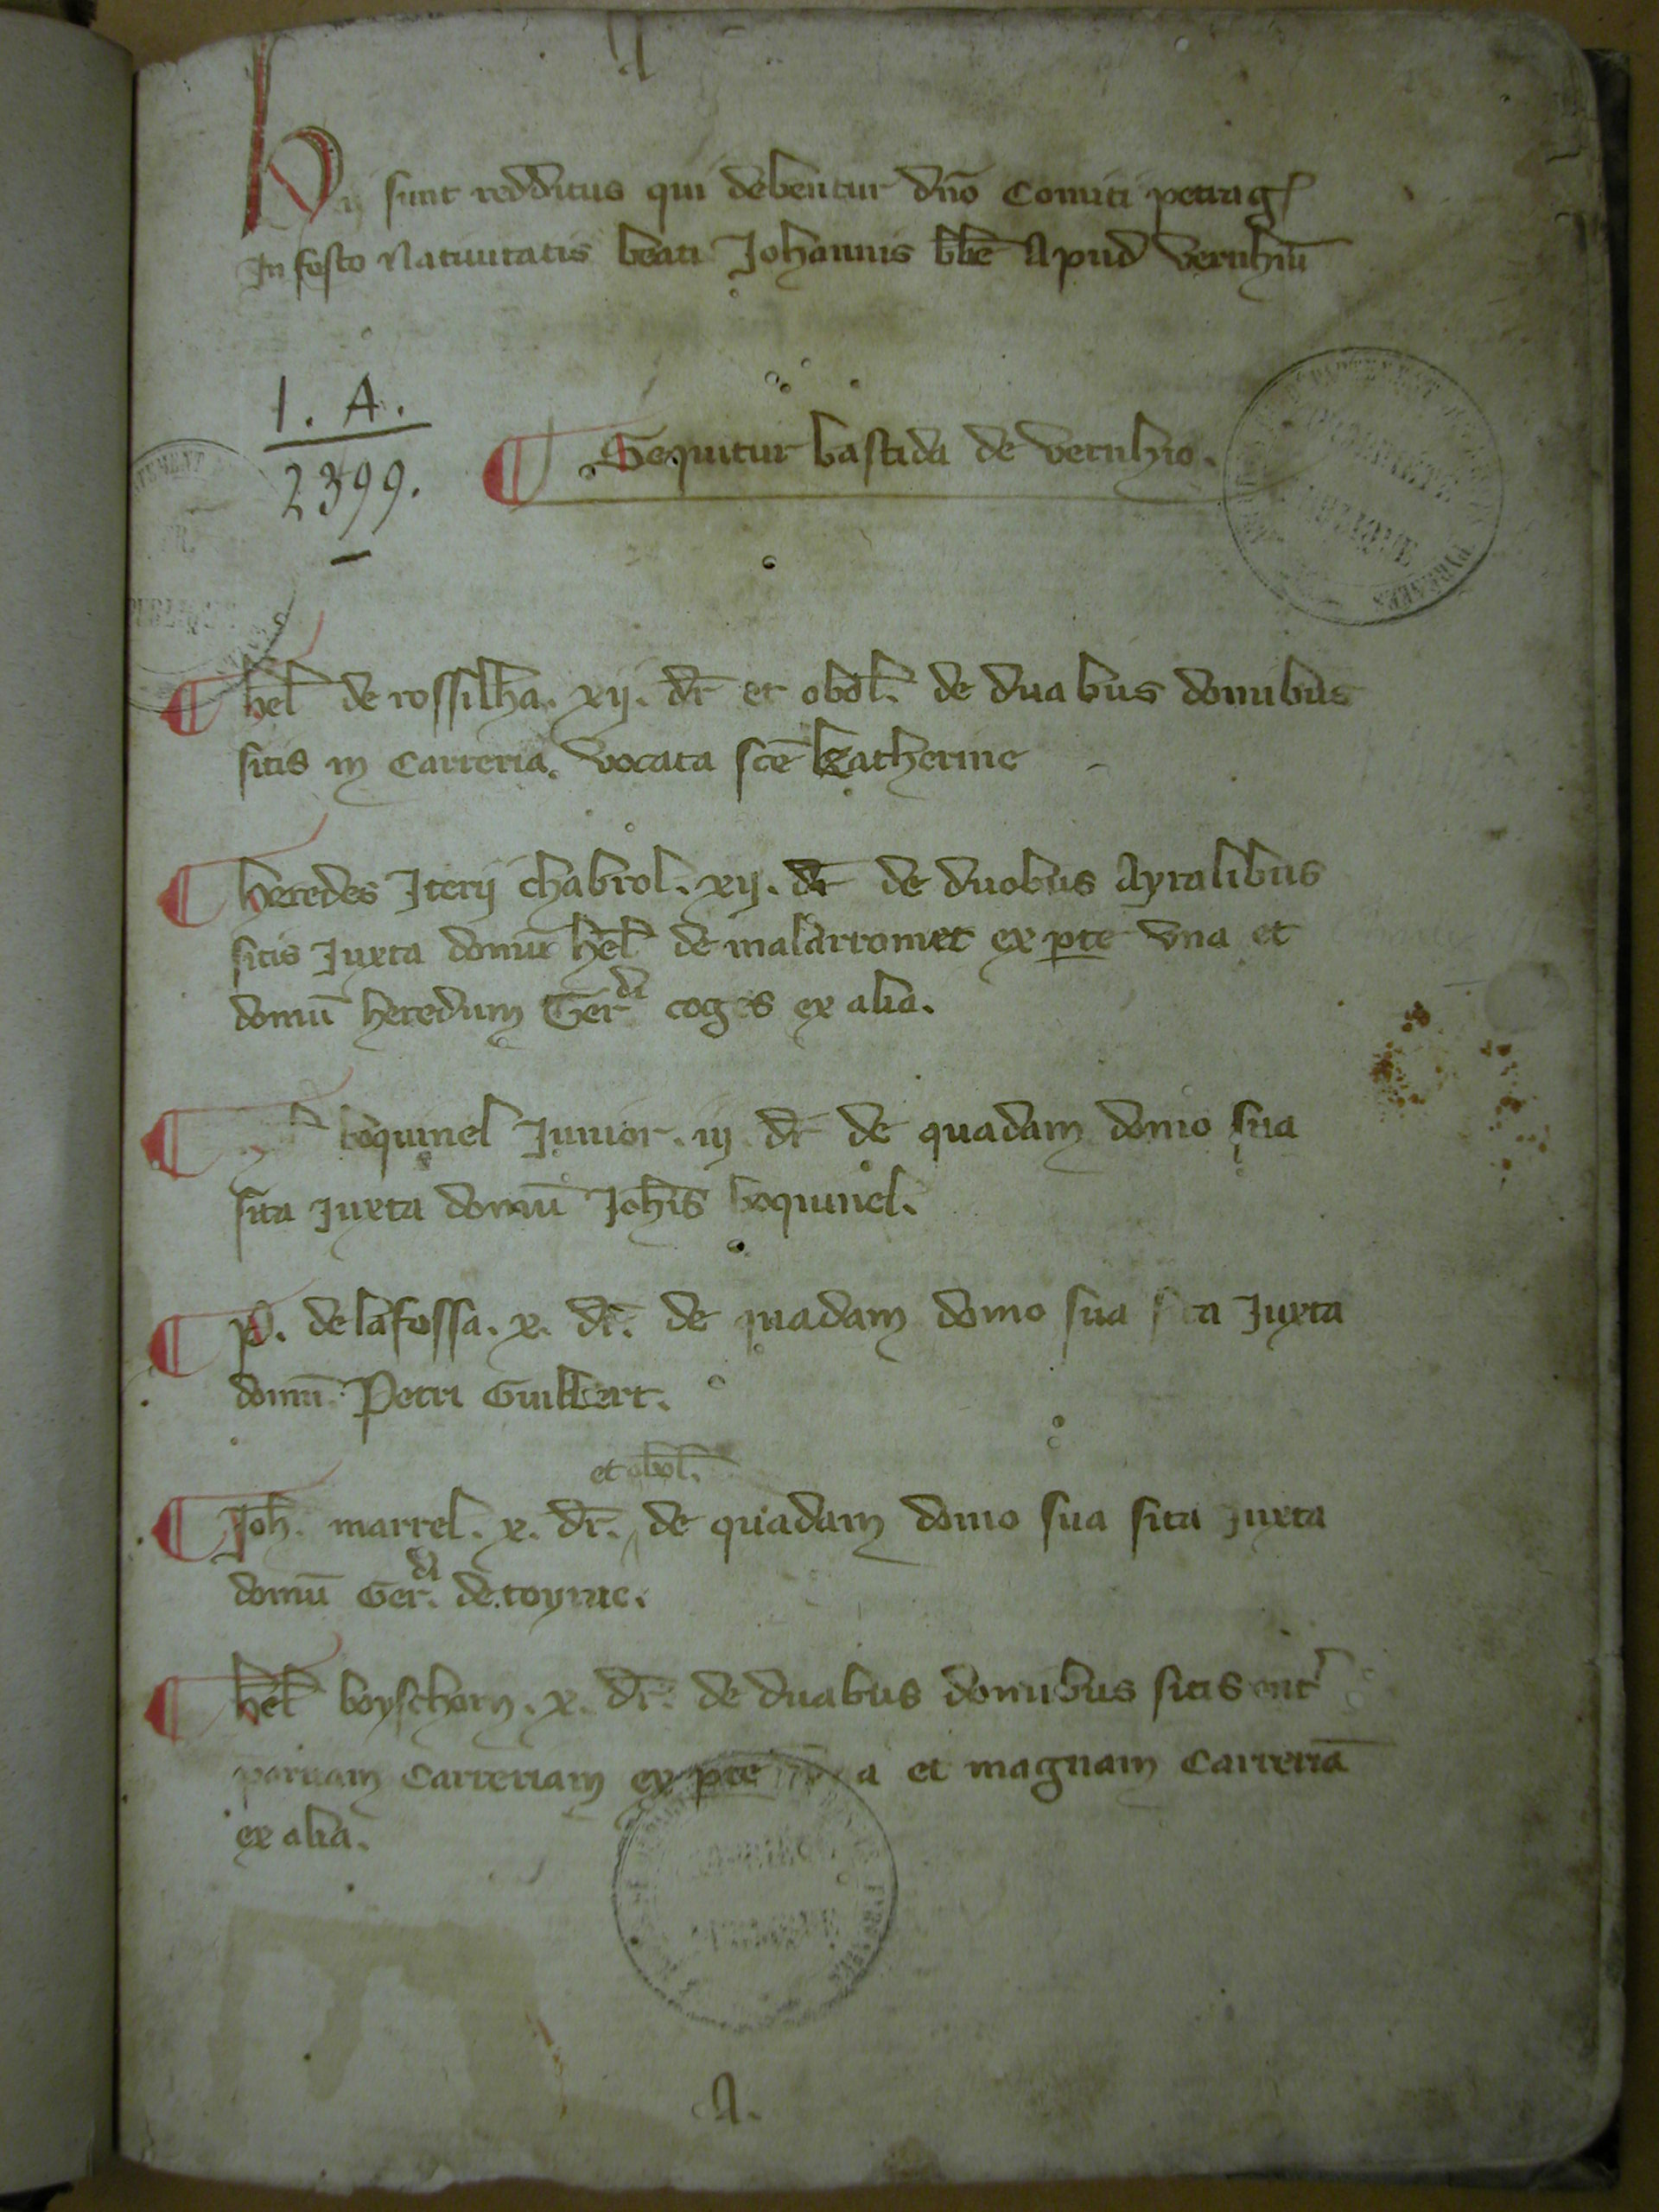 Hij sunt redditus qui debentur dño Comiti petrag
In festo Natiuitatis beati Johannis bbe Apud vernhiū
1. A.
2399.
Sequitur bastida de vernhio.
hel de rossilha. xij. dr et obol. de duabus domibus
sitis in Carreria. vocata scē katherine
heredes Iterij chabrol. xij. dr de duobus Ayralibus
sitis Juxta domū hel de malarromet ex pte vna et
domū heredum Gerdi coges ex alia.
boquinel Junior. iij dr de quadam domo sua
sita juxta domū Johis boquinel.
P. de lafossa. x. dr. de quadam domo sua juxta
domū Petri Guilbert.
et obol.
Joh. marrel. x. dr. de quadam domo sua sita juxta
domū Gerdi. de toyrac.
hel boyschom. x. dr. de duabus domibus sitis int
paruam Carreriam ex pte a et magnam Carreriā
ex alia.
A.